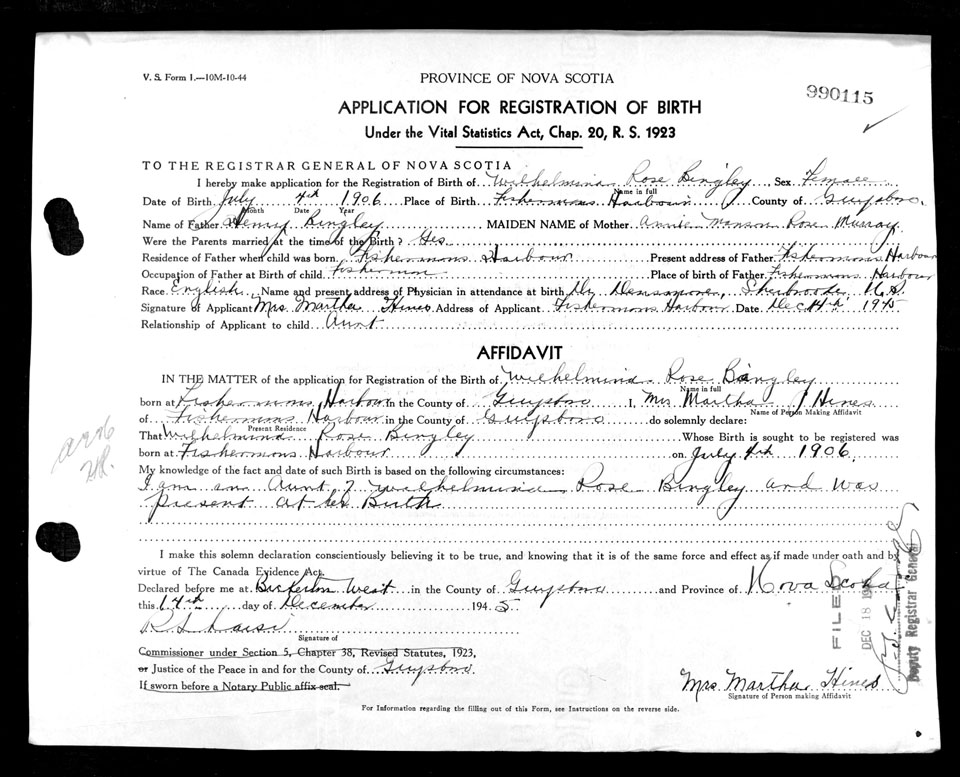 V. S. Form 1.—10M-10-44
PROVINCE OF NOVA SCOTIA
990115
APPLICATION FOR REGISTRATION OF BIRTH
Under the Vital Statistics Act, Chap. 20, R. S. 1923
TO THE REGISTRAR GENERAL OF NOVA SCOTIA
I hereby make application for the Registration of Birth of Wilhelmina Rose Bingley, Sex Female
Name in full
Date of Birth July 4th 1906 Place of Birth Fishermans Harbour County of Guysboro,
Month Date Year
Name of Father Henry Bingley MAIDEN NAME of Mother Annie Rose Murray
Were the Parents married at the time of the Birth? Yes
Residence of Father when child was born Fishermons Harbour Present address of Father Fishermons Harbour
Occupation of Father at Birth of child Fisherman Place of birth of Father Fishermons Harbour
Race English Name and present address of Physician in attendance at birth Dr Densmore, Sherbrooke N.S.
Signature of Applicant Mrs Martha Hines Address of Applicant Fishermons Harbour Date Dec 14th 1945
Relationship of Applicant to child Aunt
AFFIDAVIT
IN THE MATTER of the application for Registration of the Birth of Wilhelmina Rose Bingley
Name in full
born at Fishermons Harbour In the County of Guysboro I, Mrs Martha J Hines
Name of Person Making Affidavit
of Fishermons Harbour in the County of Guysboro do solemnly declare:
Present Residence
That Wilhelmina Rose Bingley Whose Birth is sought to be registered was
born at Fishermons Harbour on July 4th 1906.
My knowledge of the fact and date of such Birth is based on the following circumstances:
I am an Aunt of Wilhelmina Rose Bingley and was
present at her Birth
I make this solemn declaration conscientiously believing it to be true, and knowing that it is of the same force and effect as if made under oath and by
virtue of The Canada Evidence Act.
Declared before me at Bickerton West in the County of Guysboro and Province of Nova Scotia
this 14th day of December 1945
Signature of
Commissioner under Section 5, Chapter 38, Revised Statutes, 1923,
or Justice of the Peace in and for the County of Guysboro
If sworn before a Notary Public affix seal.
Mrs Martha Hines
Signature of Person making Affidavit
For Information regarding the filling out of this Form, see Instructions on the reverse side.
FILED
DEC 18
Deputy Registrar General